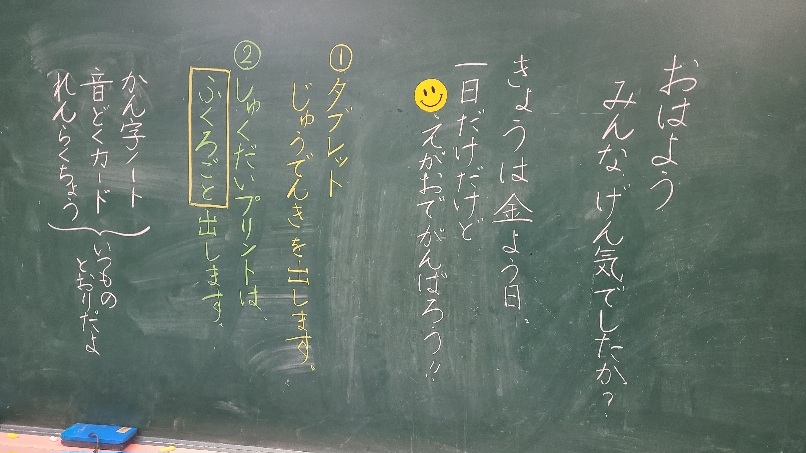 おはよう
みんなげん気でしたか?
きょうは金よう日。
一日だけだけど
えがおでがんばろう!!
①タブレット
じゅうでんきを出します。
②しゅくだいプリントは、
ふくろごと出します。
かん字ノート
音どくカード
れんらくちょう
いつもの
とおりだよ